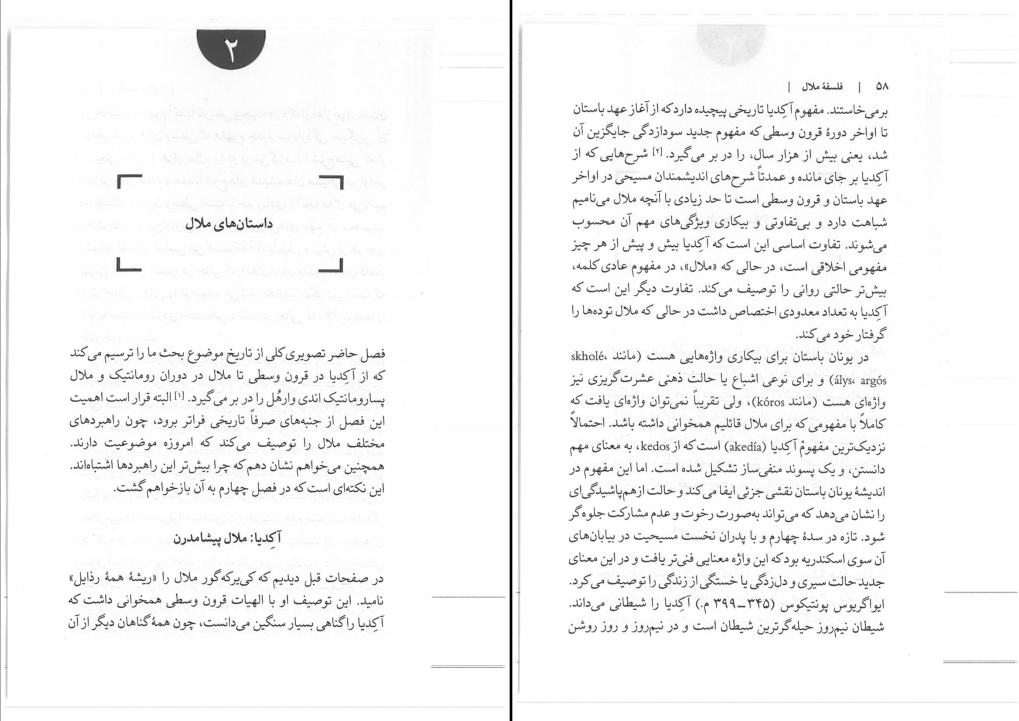 ۲
داستان‌های ملال
فصل حاضر تصویری کلی از تاریخ موضوع بحث ما را ترسیم می‌کند
که از آکِدیا در قرون وسطی تا ملال در دوران رومانتیک و ملال
پسارومانتیک اندی وارهُل را در بر می‌گیرد.[۱] البته قرار است اهمیت
این فصل از جنبه‌های صرفاً تاریخی فراتر برود، چون راهبردهای
مختلف ملال را توصیف می‌کند که امروزه موضوعیت دارند.
همچنین می‌خواهم نشان دهم که چرا بیش‌تر این راهبردها اشتباه‌اند.
این نکته‌ای است که در فصل چهارم به آن بازخواهم گشت.
آکِدیا: ملال پیشامدرن
در صفحات قبل دیدیم که کی‌یرکه‌گور ملال را «ریشهٔ همهٔ رذایل»
نامید. این توصیف او با الهیات قرون وسطی همخوانی داشت که
آکِدیا را گناهی بسیار سنگین می‌دانست، چون همهٔ گناهان دیگر از آن
۵۸ | فلسفهٔ ملال |
برمی‌خاستند. مفهوم آکِدیا تاریخی پیچیده دارد که از آغاز عهد باستان
تا اواخر دورهٔ قرون وسطی که مفهوم جدید سودازدگی جایگزین آن
شد، یعنی بیش از هزار سال، را در بر می‌گیرد.[۲] شرح‌هایی که از
آکِدیا بر جای مانده و عمدتاً شرح‌های اندیشمندان مسیحی در اواخر
عهد باستان و قرون وسطی است تا حد زیادی با آنچه ملال می‌نامیم
شباهت دارد و بی‌تفاوتی و بیکاری ویژگی‌های مهم آن محسوب
می‌شوند. تفاوت اساسی این است که آکِدیا بیش و پیش از هر چیز
مفهومی اخلاقی است، در حالی که «ملال»، در مفهوم عادی کلمه،
بیش‌تر حالتی روانی را توصیف می‌کند. تفاوت دیگر این است که
آکِدیا به تعداد معدودی اختصاص داشت در حالی که ملال توده‌ها را
گرفتار خود می‌کند.
در یونان باستان برای بیکاری واژه‌هایی هست (مانند skholé،
álys، argós) و برای نوعی اشباع یا حالت ذهنی عشرت‌گریزی نیز
واژه‌ای هست (مانند kóros)، ولی تقریباً نمی‌توان واژه‌ای یافت که
کاملاً با مفهومی که برای ملال قائلیم همخوانی داشته باشد. احتمالاً
نزدیک‌ترین مفهومْ آکِدیا (akedía) است که از kedos، به معنای مهم
دانستن، و یک پسوند منفی‌ساز تشکیل شده است. اما این مفهوم در
اندیشهٔ یونان باستان نقشی جزئی ایفا می‌کند و حالت ازهم‌پاشیدگی‌ای
را نشان می‌دهد که می‌تواند به‌صورت رخوت و عدم مشارکت جلوه‌گر
شود. تازه در سدهٔ چهارم و با پدران نخست مسیحیت در بیابان‌های
آن سوی اسکندریه بود که این واژه معنایی فنی‌تر یافت و در این معنای
جدید حالت سیری و دل‌زدگی یا خستگی از زندگی را توصیف می‌کرد.
ایواگریوس پونتیکوس (۳۴۵–۳۹۹ م.) آکِدیا را شیطانی می‌داند.
شیطان نیم‌روز حیله‌گرترین شیطان است و در نیم‌روز و روز روشن